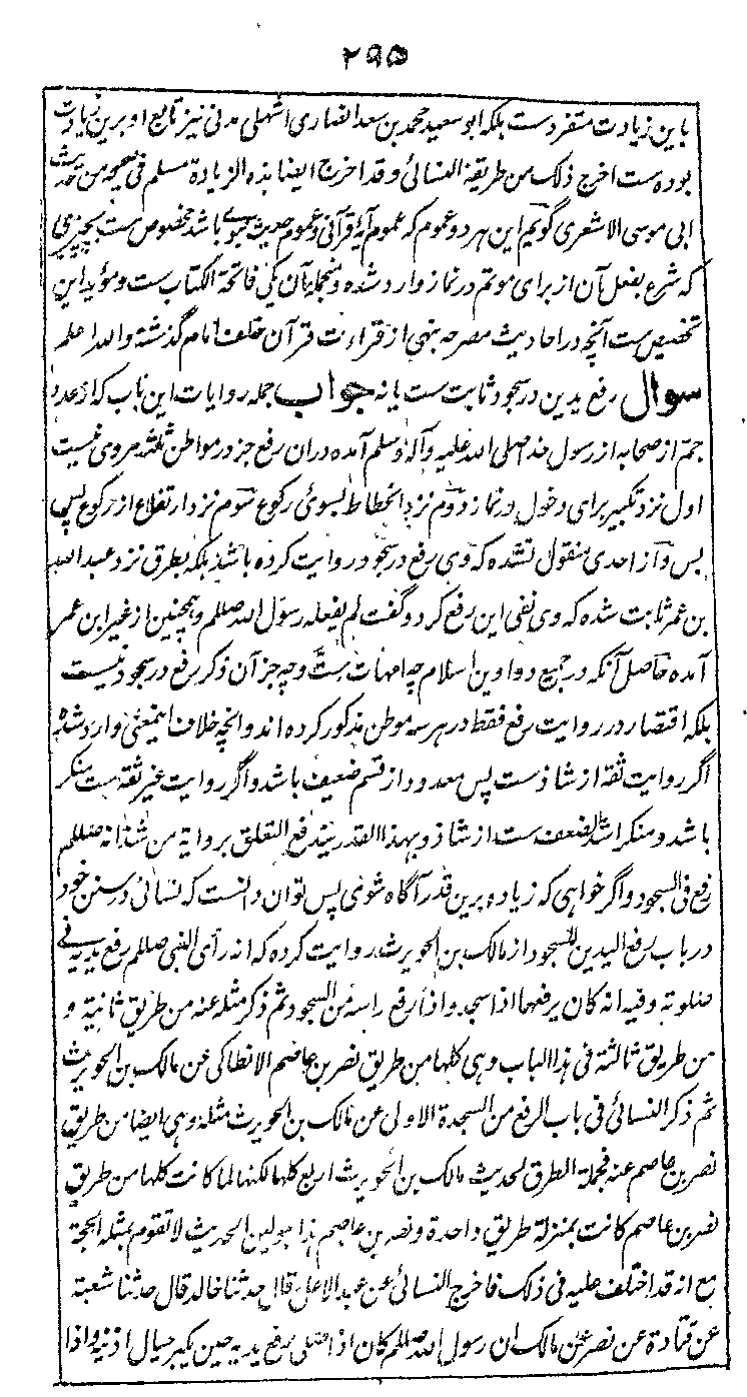 ۲۹۵
باین زیادت متفرد ست بلکہ ابو سعید محمد بن سعد انصاری اشہلی مدنی نیز تابع او برین زیادت
بودہ ست اخرج ذلک من طریقۃ النسائی وقد اخرج ایضا ہذہ الزیادۃ مسلم فی صحیحہ من حدیث
ابی موسی الاشعری گویم این ہر دو عموم کہ عموم آیۂ قرآنی و عموم حدیث نبوی باشد مخصوص ست بچیزی
کہ شرع بفعل آن از برای موتم در نماز وارد شدہ و منجملہ آن یکی فاتحۃ الکتاب ست و مؤید این
تخصیص ست آنچہ در احادیث مصرحہ بنہی از قراءت قرآن خلف امام گذشتہ واللہ اعلم
سوال رفع یدین در سجود ثابت ست یا نہ جواب جملہ روایات این باب کہ از عدد
جم از صحابہ از رسول خدا صلی اللہ علیہ وآلہ وسلم آمدہ دران رفع جز در مواطن ثلثہ مروی نیست
اول نزد تکبیر برای دخول در نماز دوم نزد انحطاط بسوی رکوع سوم نزد ارتفاع از رکوع لیس
بس و از احدی منقول نشدہ کہ وی رفع در سجود روایت کردہ باشد بلکہ بطرق نزد عبد اللہ
بن عمر ثابت شدہ کہ وی نفی این رفع کرد و گفت لم یفعلہ رسول اللہ صللم و ہمچنین از غیر ابن عمر
آمدہ حاصل آنکہ در جمیع دواوین اسلام چہ امہات ست و چہ جز آن ذکر رفع در سجود نیست
بلکہ اقتصار در روایت رفع فقط در ہر سہ موطن مذکور کردہ اند و انچہ خلاف اینمعنی وارد شدہ
اگر روایت ثقہ از شاذ ست پس معدود از قسم ضعیف باشد و اگر روایت غیر ثقہ ست منکر
باشد و منکر اشد الضعف ست از شاذ و بہذا القدر یندفع التعلق بروایۃ من شذ انہ صللم
رفع فی السجود و اگر خواہی کہ زیادہ برین قدر آگاہ شوی پس توان دانست کہ نسائی در سنن خود
در باب رفع الیدین للسجود از مالک بن الحویرث روایت کردہ کہ انہ رأی النبی صللم رفع یدیہ فی
صلوتہ وفیہ انہ کان یرفعہا اذا سجد واذا رفع راسہ من السجود ثم ذکر مثلہ عنہ من طریق ثانیۃ و
من طریق ثالثۃ فی ہذا الباب وہی کلہا من طریق نصر بن عاصم الانطاکی عن مالک بن الحویرث
ثم ذکر النسائی فی باب الرفع من السجدۃ الاولی عن مالک بن الحویرث مثلہ وہی ایضا من طریق
نصر بن عاصم عنہ فجملۃ الطرق لحدیث مالک بن الحویرث اربع کلہا لکنہا لما کانت کلہا من طریق
نصر بن عاصم کانت بمنزلۃ طریق واحدۃ ونصر بن عاصم ہذا ہو لین الحدیث لا تقوم بمثلہ الحجۃ
مع انہ قد اختلف علیہ فی ذلک فاخرج النسائی عن عبد الاعلی قال حدثنا خالد قال حدثنا شعبۃ
عن قتادۃ عن نصر عن مالک ان رسول اللہ صللم کان اذا صلی یرفع یدیہ حین یکبر حیال اذنیہ واذا